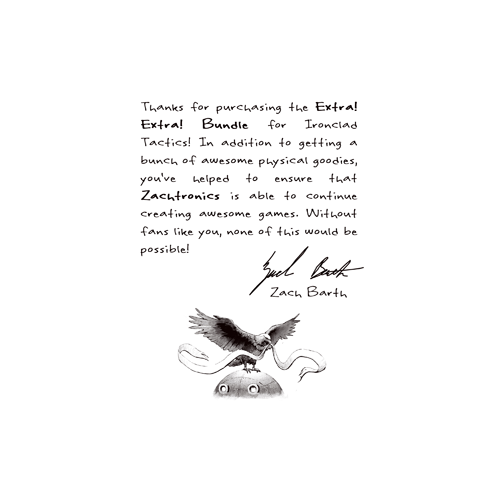 Thanks for purchasing the Extra!
Extra! Bundle for Ironclad
Tactics! In addition to getting a
bunch of awesome physical goodies,
you've helped to ensure that
Zachtronics is able to continue
creating awesome games. Without
fans like you, none of this would be
possible!
Zach Barth
Zach Barth